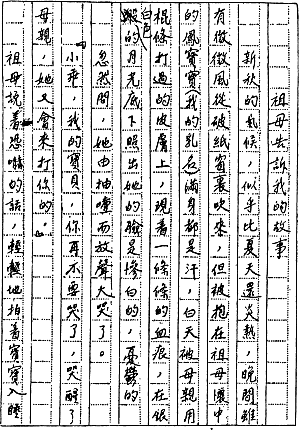 祖母告訴我的故事
新秋的氣候，似乎比夏天還炎熱，晚間雖
有微微風從破紙窗裏吹來，但被抱在祖母懷中
的鳳寶寶(我的乳名)滿身都是汗，白天被母親用
棍條打過的皮膚上，現着一條條的血痕，在銀
白色的月光底下照出她的臉是慘白的，憂鬱的
忽然間，她由抽噎而放聲大哭了。
「小乖，我的寶貝，你再不要哭了，哭醒了
母親，她又會來打你的。」
祖母說着恐嚇的話，輕輕地拍着寶寶入睡